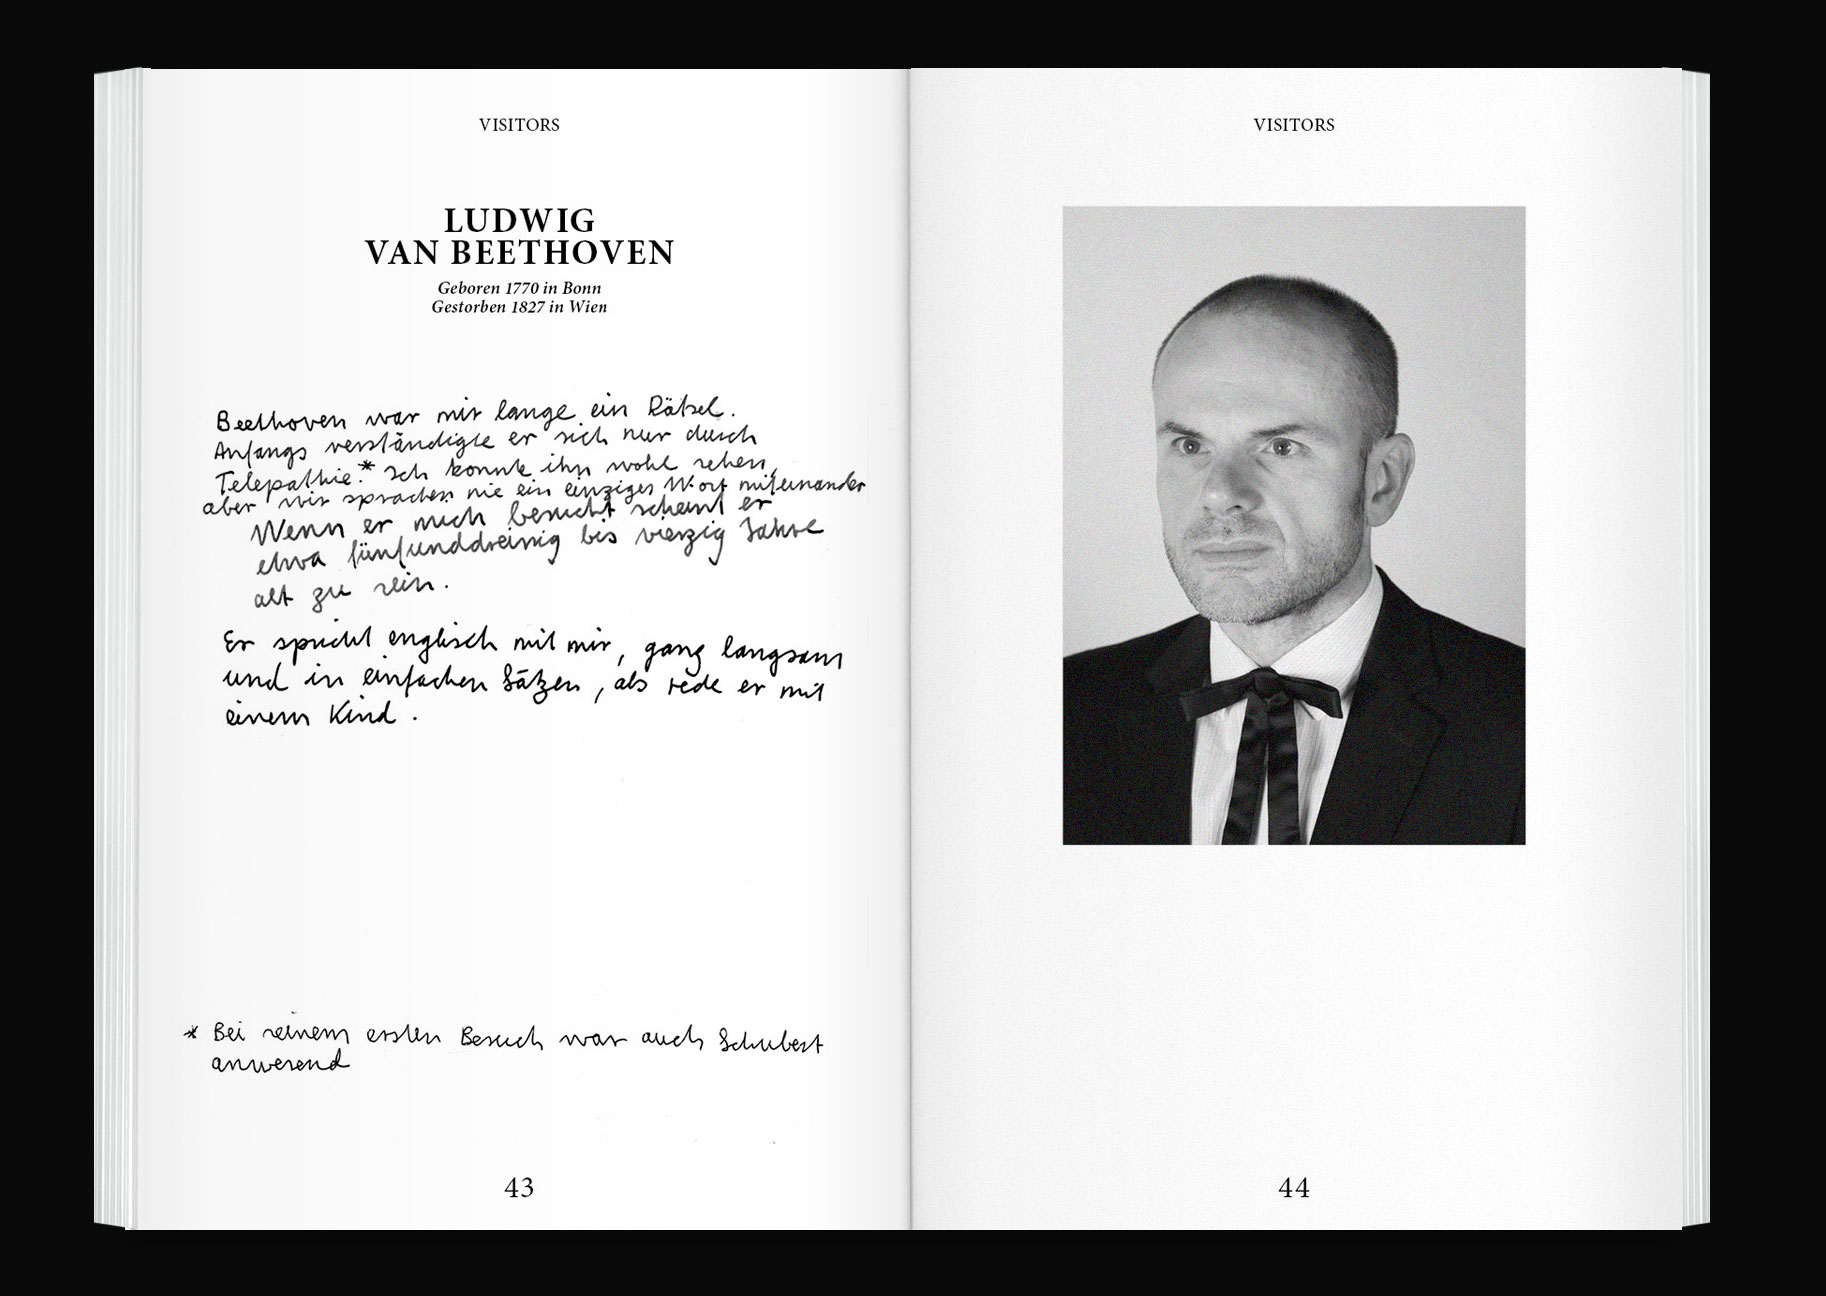 VISITORS
LUDWIG
VAN BEETHOVEN
Geboren 1770 in Bonn
Gestorben 1827 in Wien
Beethoven war mir lange ein Rätsel.
Anfangs verständigte er sich nur durch
Telepathie.* Ich konnte ihn wohl sehen,
aber wir sprachen nie ein einziges Wort miteinander
Wenn er mich besucht scheint er
etwa fünfunddreissig bis vierzig Jahre
alt zu sein.
Er spricht englisch mit mir, ganz langsam
und in einfachen Sätzen, als rede er mit
einem Kind.
* Bei seinem ersten Besuch war auch Schubert
anwesend
43
VISITORS
44